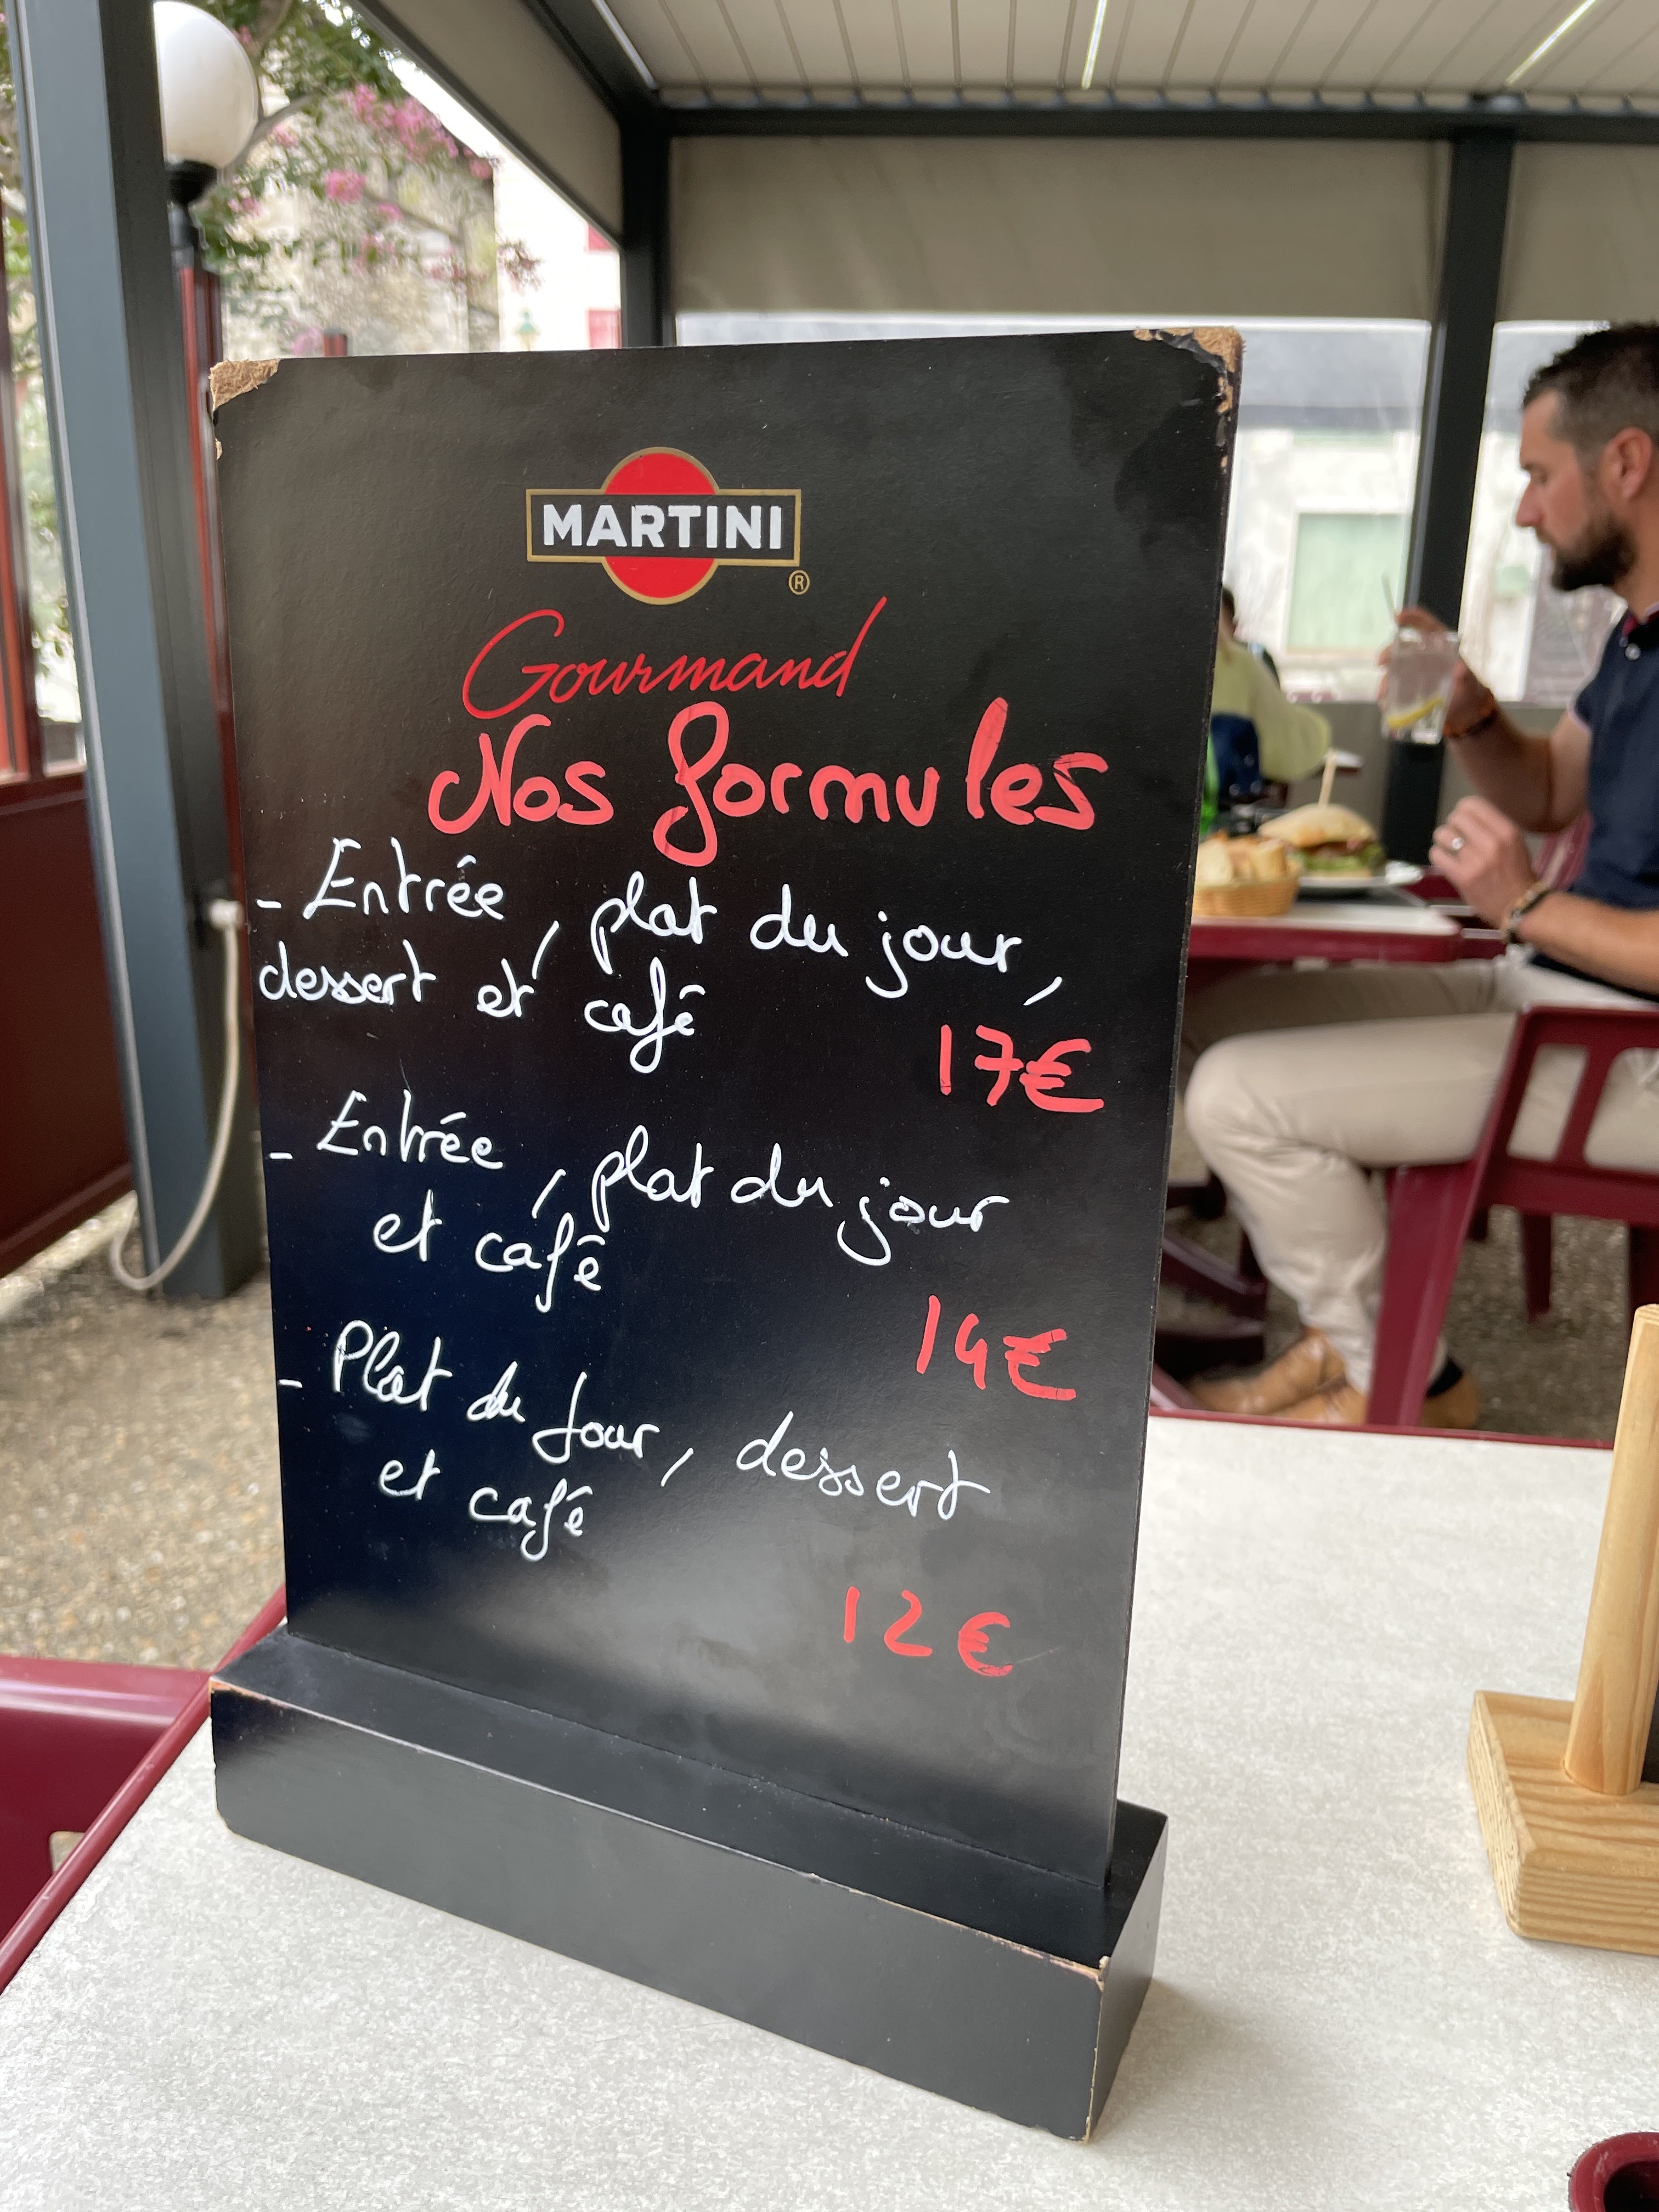 MARTINI
®
Gourmand
Nos formules
- Entrée, plat du jour,
dessert et café
17€
- Entrée, plat du jour
et café
14€
- Plat du Jour, dessert
et café
12€